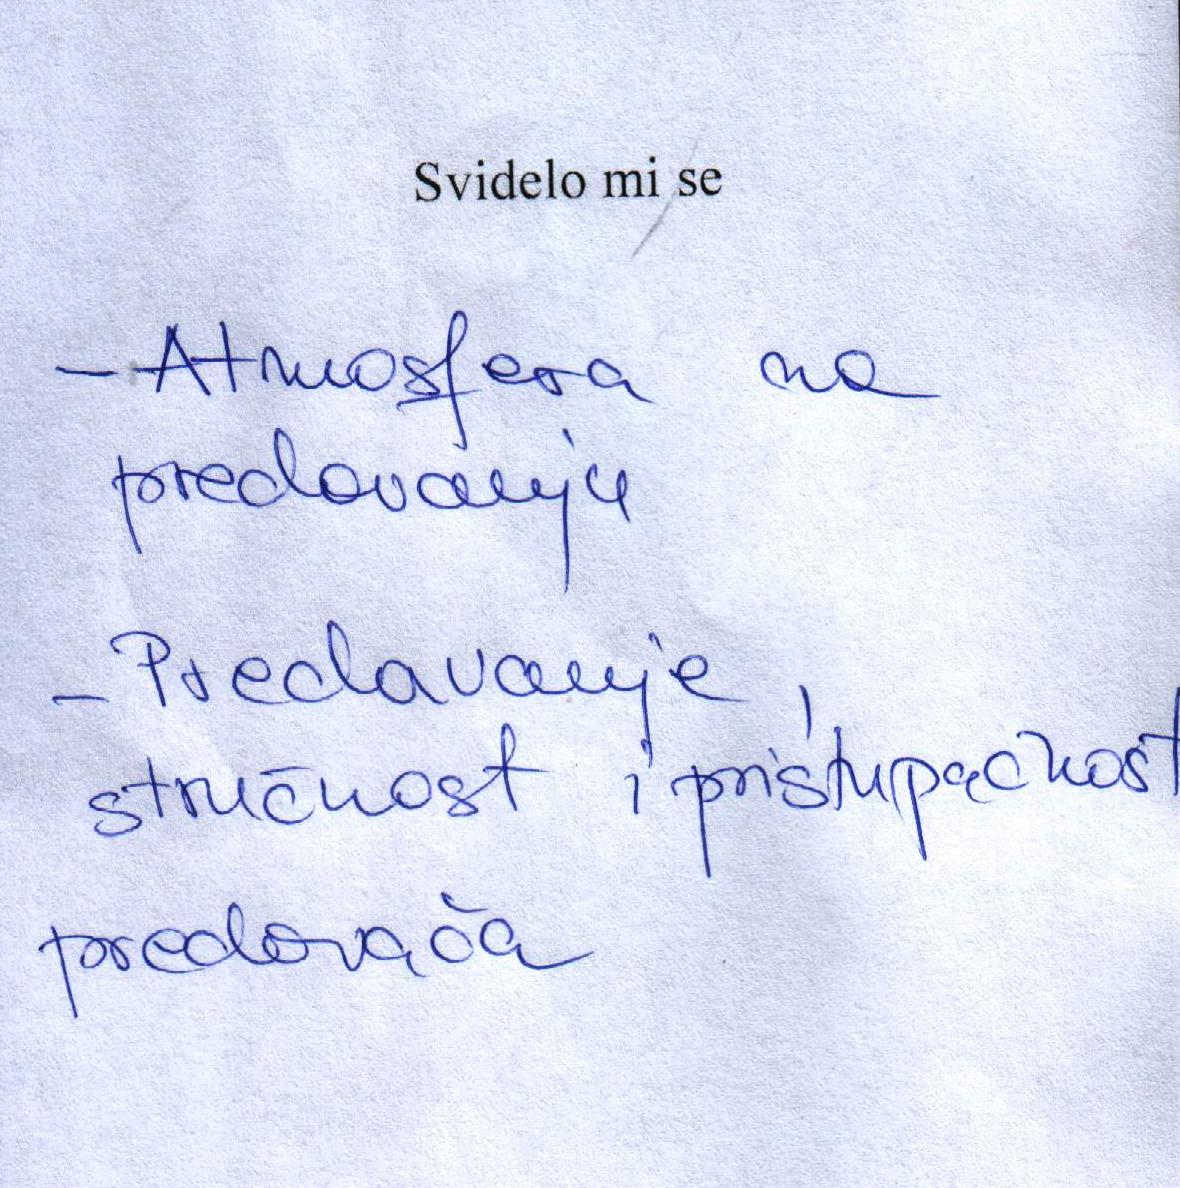 Svidelo mi se
- Atmosfera na
predavanju
- Predavanje,
stručnost i pristupačnost
predavača